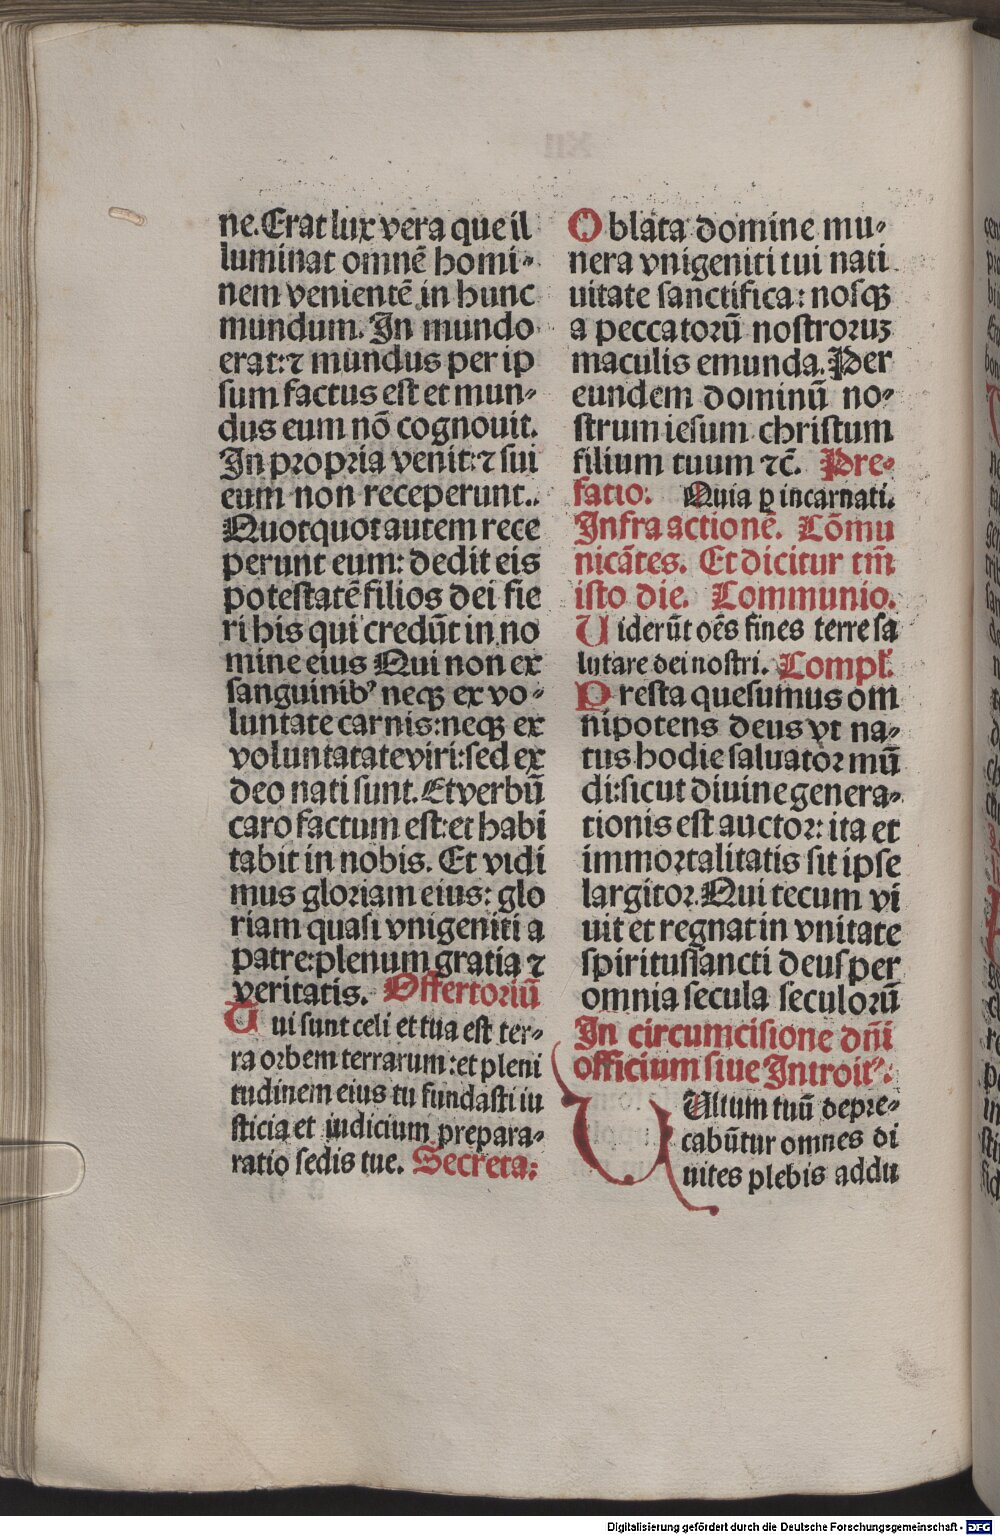 ne. Erat lux vera que il
luminat omnē homi⸗
nem venientē in hunc
mundum. In mundo
erat: ⁊ mundus per ip
sum factus est et mun⸗
dus eum nō cognouit.
In propria venit: ⁊ sui
eum non receperunt..
Quotquot autem rece
perunt eum: dedit eis
potestatē filios dei fie
ri his qui credūt in no
mine eius Qui non ex
sanguinibꝰ neqꝫ ex vo⸗
luntate carnis: neqꝫ ex
voluntatate viri: sed ex
deo nati sunt. Et verbū
caro factum est: et habi
tabit in nobis. Et vidi
mus gloriam eius: glo
riam quasi vnigeniti a
patre: plenum gratia ⁊
veritatis. Offertoriū
Tui sunt celi et tua est ter⸗
ra orbem terrarum: et pleni
tudinem eius tu fundasti iu
sticia et iudicium prepara⸗
ratio sedis tue. Secreta:
Oblata domine mu⸗
nera vnigeniti tui nati
uitate sanctifica: nosqꝫ
a peccatorū nostroruꝫ
maculis emunda. Per
eundem dominū no⸗
strum iesum christum
filium tuum ⁊c̄. Pre⸗
fatio. Quia ꝑ incarnati.
Infra actionē. Cōmu
nicātes. Et dicitur tm̄
isto die. Communio.
Uiderūt oēs fines terre sa
lutare dei nostri. Compl'.
Presta quesumus om
nipotens deus vt na⸗
tus hodie saluator mū
di: sicut diuine genera⸗
tionis est auctor: ita et
immortalitatis sit ipse
largitor. Qui tecum vi
uit et regnat in vnitate
spiritussancti deus per
omnia secula seculorū
In circumcisione dn̄i
officium siue Introitꝰ.
UUltum tuū depre⸗
cabūtur omnes di
uites plebis addu
Digitalisierung gefördert durch die Deutsche Forschungsgemeinschaft - DFG